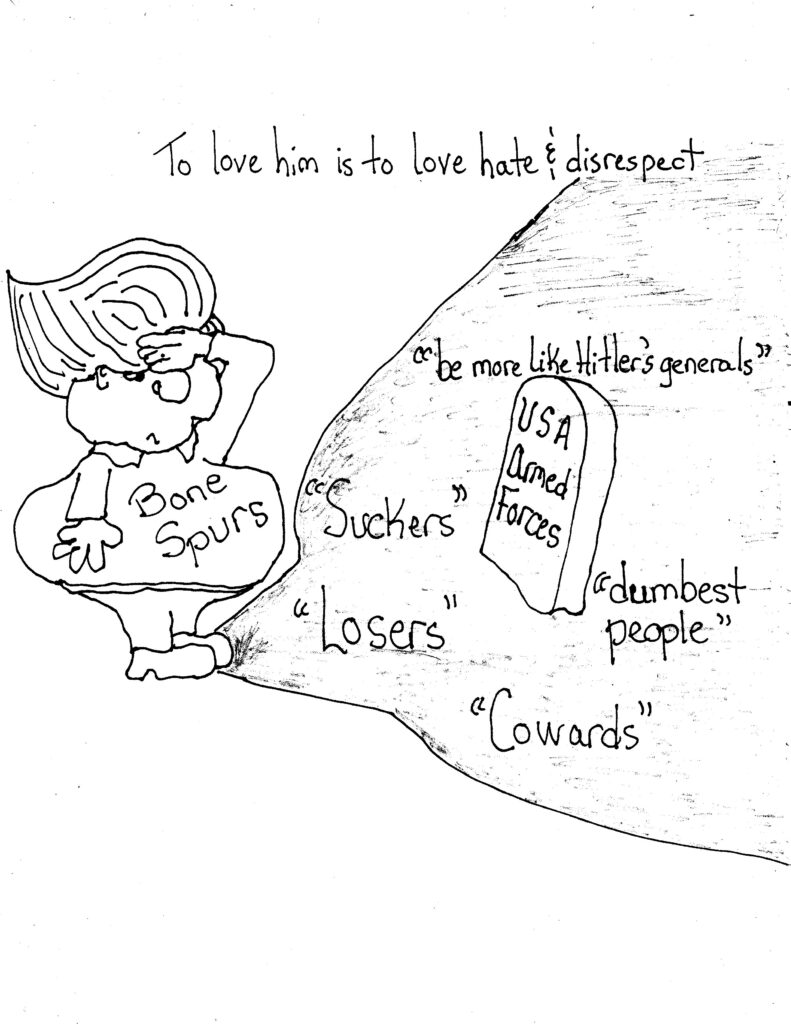 To love him is to love hate & disrespect
"be more like Hitler's generals"
USA
Armed
Forces
Bone
Spurs
"Suckers"
"Losers"
"dumbest
people"
"Cowards"